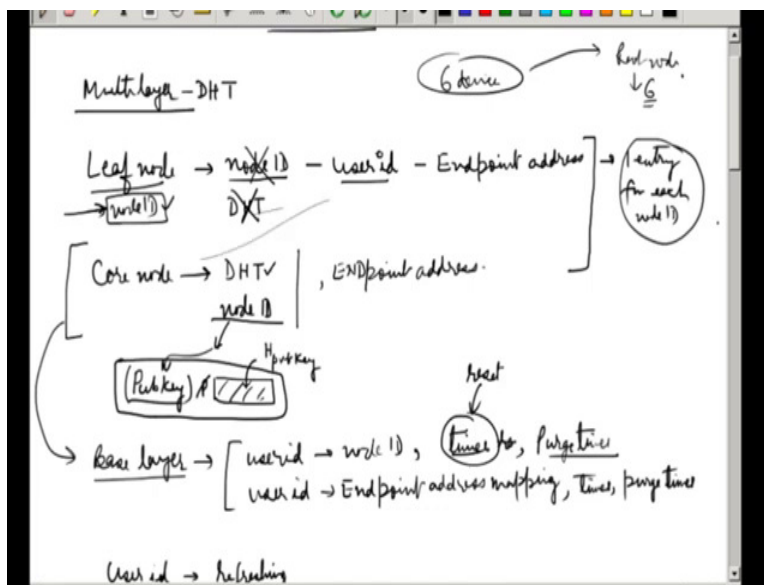 Multilayer - DHT
6 device
node.
6
Leaf node → node ID - userid - Endpoint address → 1 entry
for each
node ID
→ node ID ✓ DHT
Core node → DHT ✓ , ENDpoint address.
node ID
(Pubkey)
Hpubkey
reset
Base layer → userid → node ID, timer, Purge timer
user id → Endpoint address mapping, Timer, purge timer
User id → Refreshing